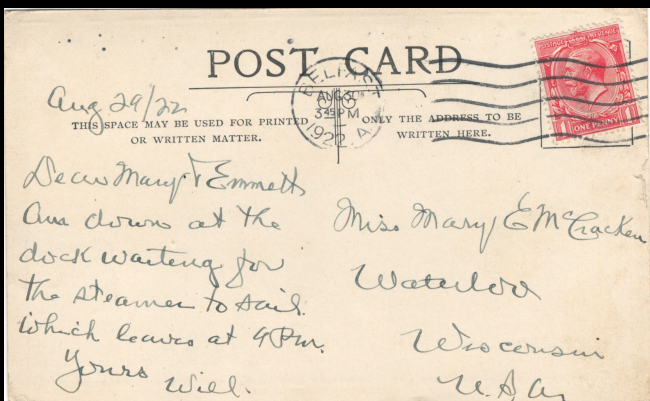 POST CARD
BELFAST
AUG 30
3 45 PM
1922
POSTAGE REVENUE
ONE PENNY
Aug 29/22
THIS SPACE MAY BE USED FOR PRINTED
OR WRITTEN MATTER.
ONLY THE ADDRESS TO BE
WRITTEN HERE.
Dear Mary & Emmett
Am down at the
dock waiting for
the steamer to sail.
which leaves at 9 Pm.
Yours Will.
Miss Mary E McCracken
Waterloo
Wisconsin
U.S.A.